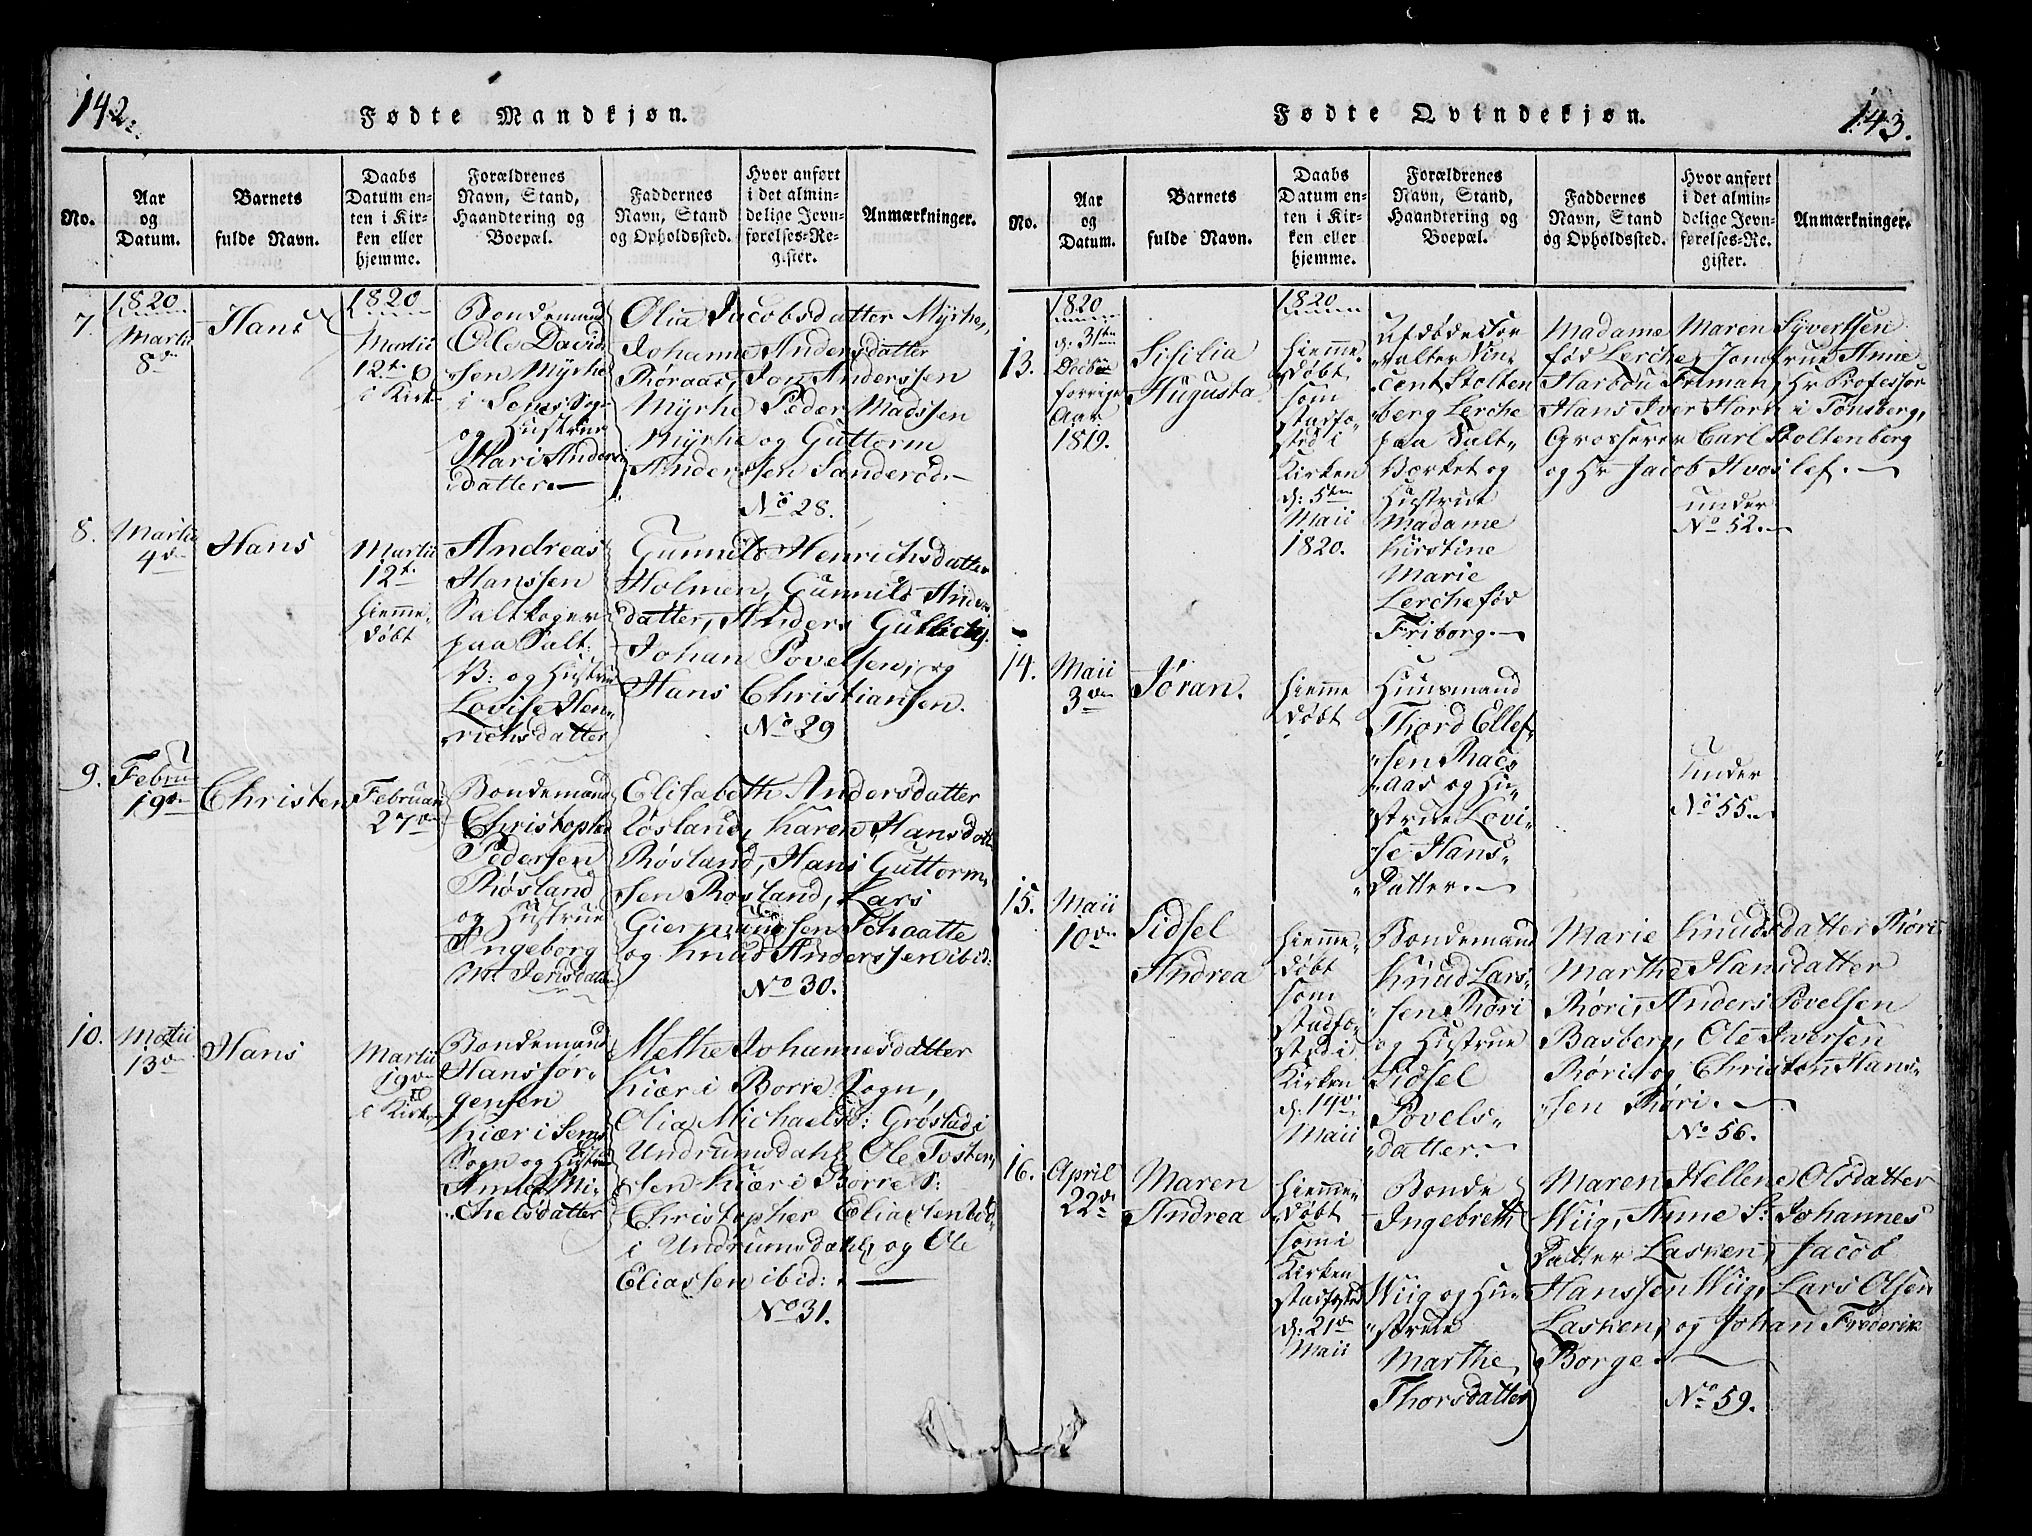 142.
Fødte Mandkjøn.
No.
Aar
og
Datum.
Barnets
fulde Navn.
Daabs
Datum en-
ten i Kir-
ken eller
hjemme.
Forældrenes
Navn, Stand,
Haandtering og
Boepæl.
Faddernes
Navn, Stand
og Opholdssted.
Hvor anført
i det almin-
delige Jevn-
førelses-Re-
gister.
Anmærkninger.
7.
1820
Martii
8de
Hans
1820
Martii
12te
i Kirk
Bondemand
Ole David-
sen Myrhe
i Sems Sog-
og Hustrue
Mari Anders
datter.
Olia Jacobsdatter Myrhe,
Johanne Andersdatter
Røraas, Jon Anderssen
Myrhe Peder Madssen
Myrhe og Guttorm
Anderssen Sanderød.
No 28.
8.
Martii
4de
Hans
Martii
12te
hiemme-
døbt
Andreas
Hanssen
Saltkoger
paa Salt:
V: og Hustrue
Lovise Hen-
richsdatter
Gunnild Henrichsdatter
Holmen, Gunnild Anders
datter, Anders
Johan Povelsen, og
Hans Christiansen.
No 29
9.
Febru
19de
Christen
Februari
27de
Bondemand
Christopher
Pedersen
Røsland
og Hustrue
Ingeborg
Jensdatter
Elisabeth Andersdatter
Røsland, Karen Hansdatt
Røsland, Hans Guttorm-
sen Røsland, Lars
Giermundsen Schaatte
og Knud Anderssen ibid:
No 30.
10.
Martii
13de
Hans
Martii
19de
i Kirk
Bondemand
Hans Jør-
gensen
Kiær i Sems
Sogn og Hustrue
Anne Mi-
chelsdatter
Methe Johannesdatter
Kiær i Borre Sogn,
Olia Michaelsd: Grøstad i
Undrumsdahl, Ole Tosten-
sen Kiær i Borre S:
Christopher Eliassen
i Undrumsdahl, og Ole
Eliassen ibid:
No 31.
143.
Fødte Qvindekjøn.
No.
Aar
og
Datum.
Barnets
fulde Navn.
Daabs
Datum en-
ten i Kir-
ken eller
hjemme.
Forældrenes
Navn, Stand,
Haandtering og
Boepæl.
Faddernes
Navn, Stand
og Opholdssted.
Hvor anført
i det almin-
delige Jevn-
førelses-Re-
gister.
Anmærkninger.
13.
1820
d: 31te
Decbr
forrige
Aar
1819.
Sisilia
Augusta
1820
hiemme-
døbt
som
stadfæ-
sted i
Kirken
d: 5te
Maii
1820.
Afdøde For
valter Vin-
cent Stolten
berg Lerche
paa Salt-
Værket og
Hustrue
Madame
Kirstine
Marie
Lerche fød
Friborg.
Madame Maren Syvertsen
fød Lerche, Jomfrue Anne
Harbou Friman, Hr Professor
Hans Iver Horn i Tønsberg,
Grosserer Carl Stoltenberg
og Hr Jacob Hvoslef.
under
No 52.
14.
Maii
3de
Jøran.
hiemme
døbt
Huusmand
Thord Ellef-
sen Raes-
aas og Hu-
strue Lovi-
se Hans-
Datter.
under
No 55.
15.
Maii
10de
Sidsel
Andrea
hiemme-
døbt
som
stadfæ-
sted i
Kirken
d: 19de
Maii
Bondemand
Knud Lars-
sen Røri
og Hustrue
Sidsel
Povels-
datter.
Marie Knudsdatter Røri
Marthe Hansdatter
Røri, Anders Povelsen
Basberg, Ole Iversen
Røri, og Christen Hans-
sen Røri.
No 56.
16.
April
22de
Maren
Andrea
hiemme-
døbt
som i
Kirken
stadfæsted
d: 21de
Maii
Bonde
Ingebreth
Wiig og Hu-
strue
Marthe
Thorsdatter
Maren Hellene Olsdatter
Wiig, Anne S: Johannes
Datter Lasken, Jacob
Hanssen Wiig, Lars Olsen
Lasken, og Johan Frederik
Borge.
No 59.